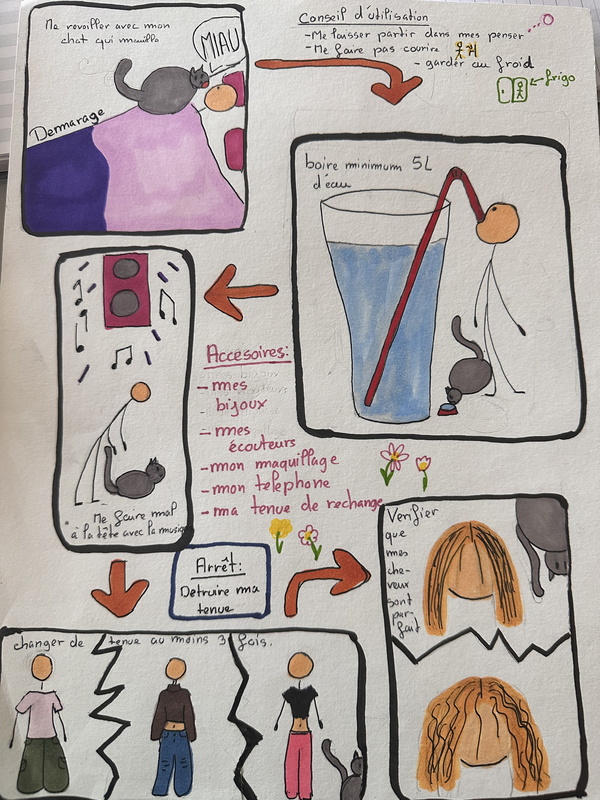 Me reveiller avec mon
chat qui miaulle
MIAU
Demarage
Conseil d'utilisation
- Me laisser partir dans mes penser
- Me faire pas courire
- garder au froid
frigo
boire minimum 5L
d'eau
Accesoires:
- mes
bijoux
- mes
écouteurs
- mon maquillage
- mon telephone
- ma tenue de rechange
Me faire mal
à la tête avec la musique
Arrêt:
Detruire ma
tenue
Verifier
que
mes
che-
veux
sont
par-
fait
changer de tenue au moins 3 fois.